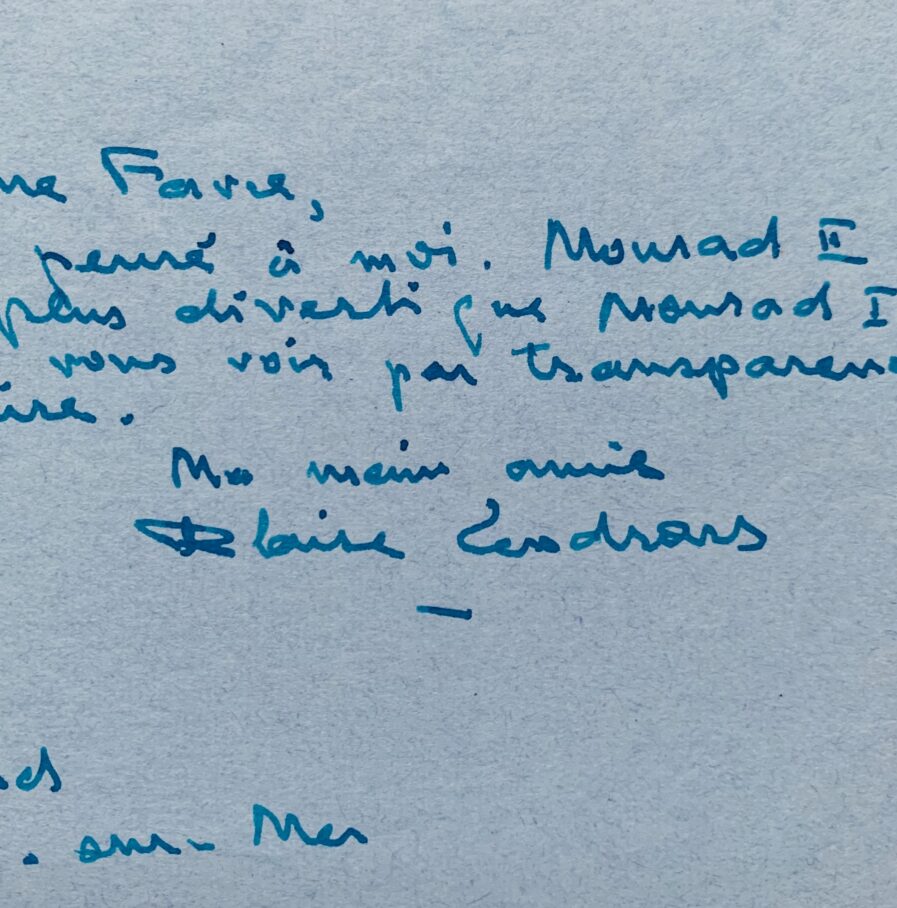 ne Favre,
pensé à moi. Mourad II
plus diverti que Mourad I
vous vois par transparen
ire.
Ma main amie
Blaise Cendrars
—
. sur-Mer